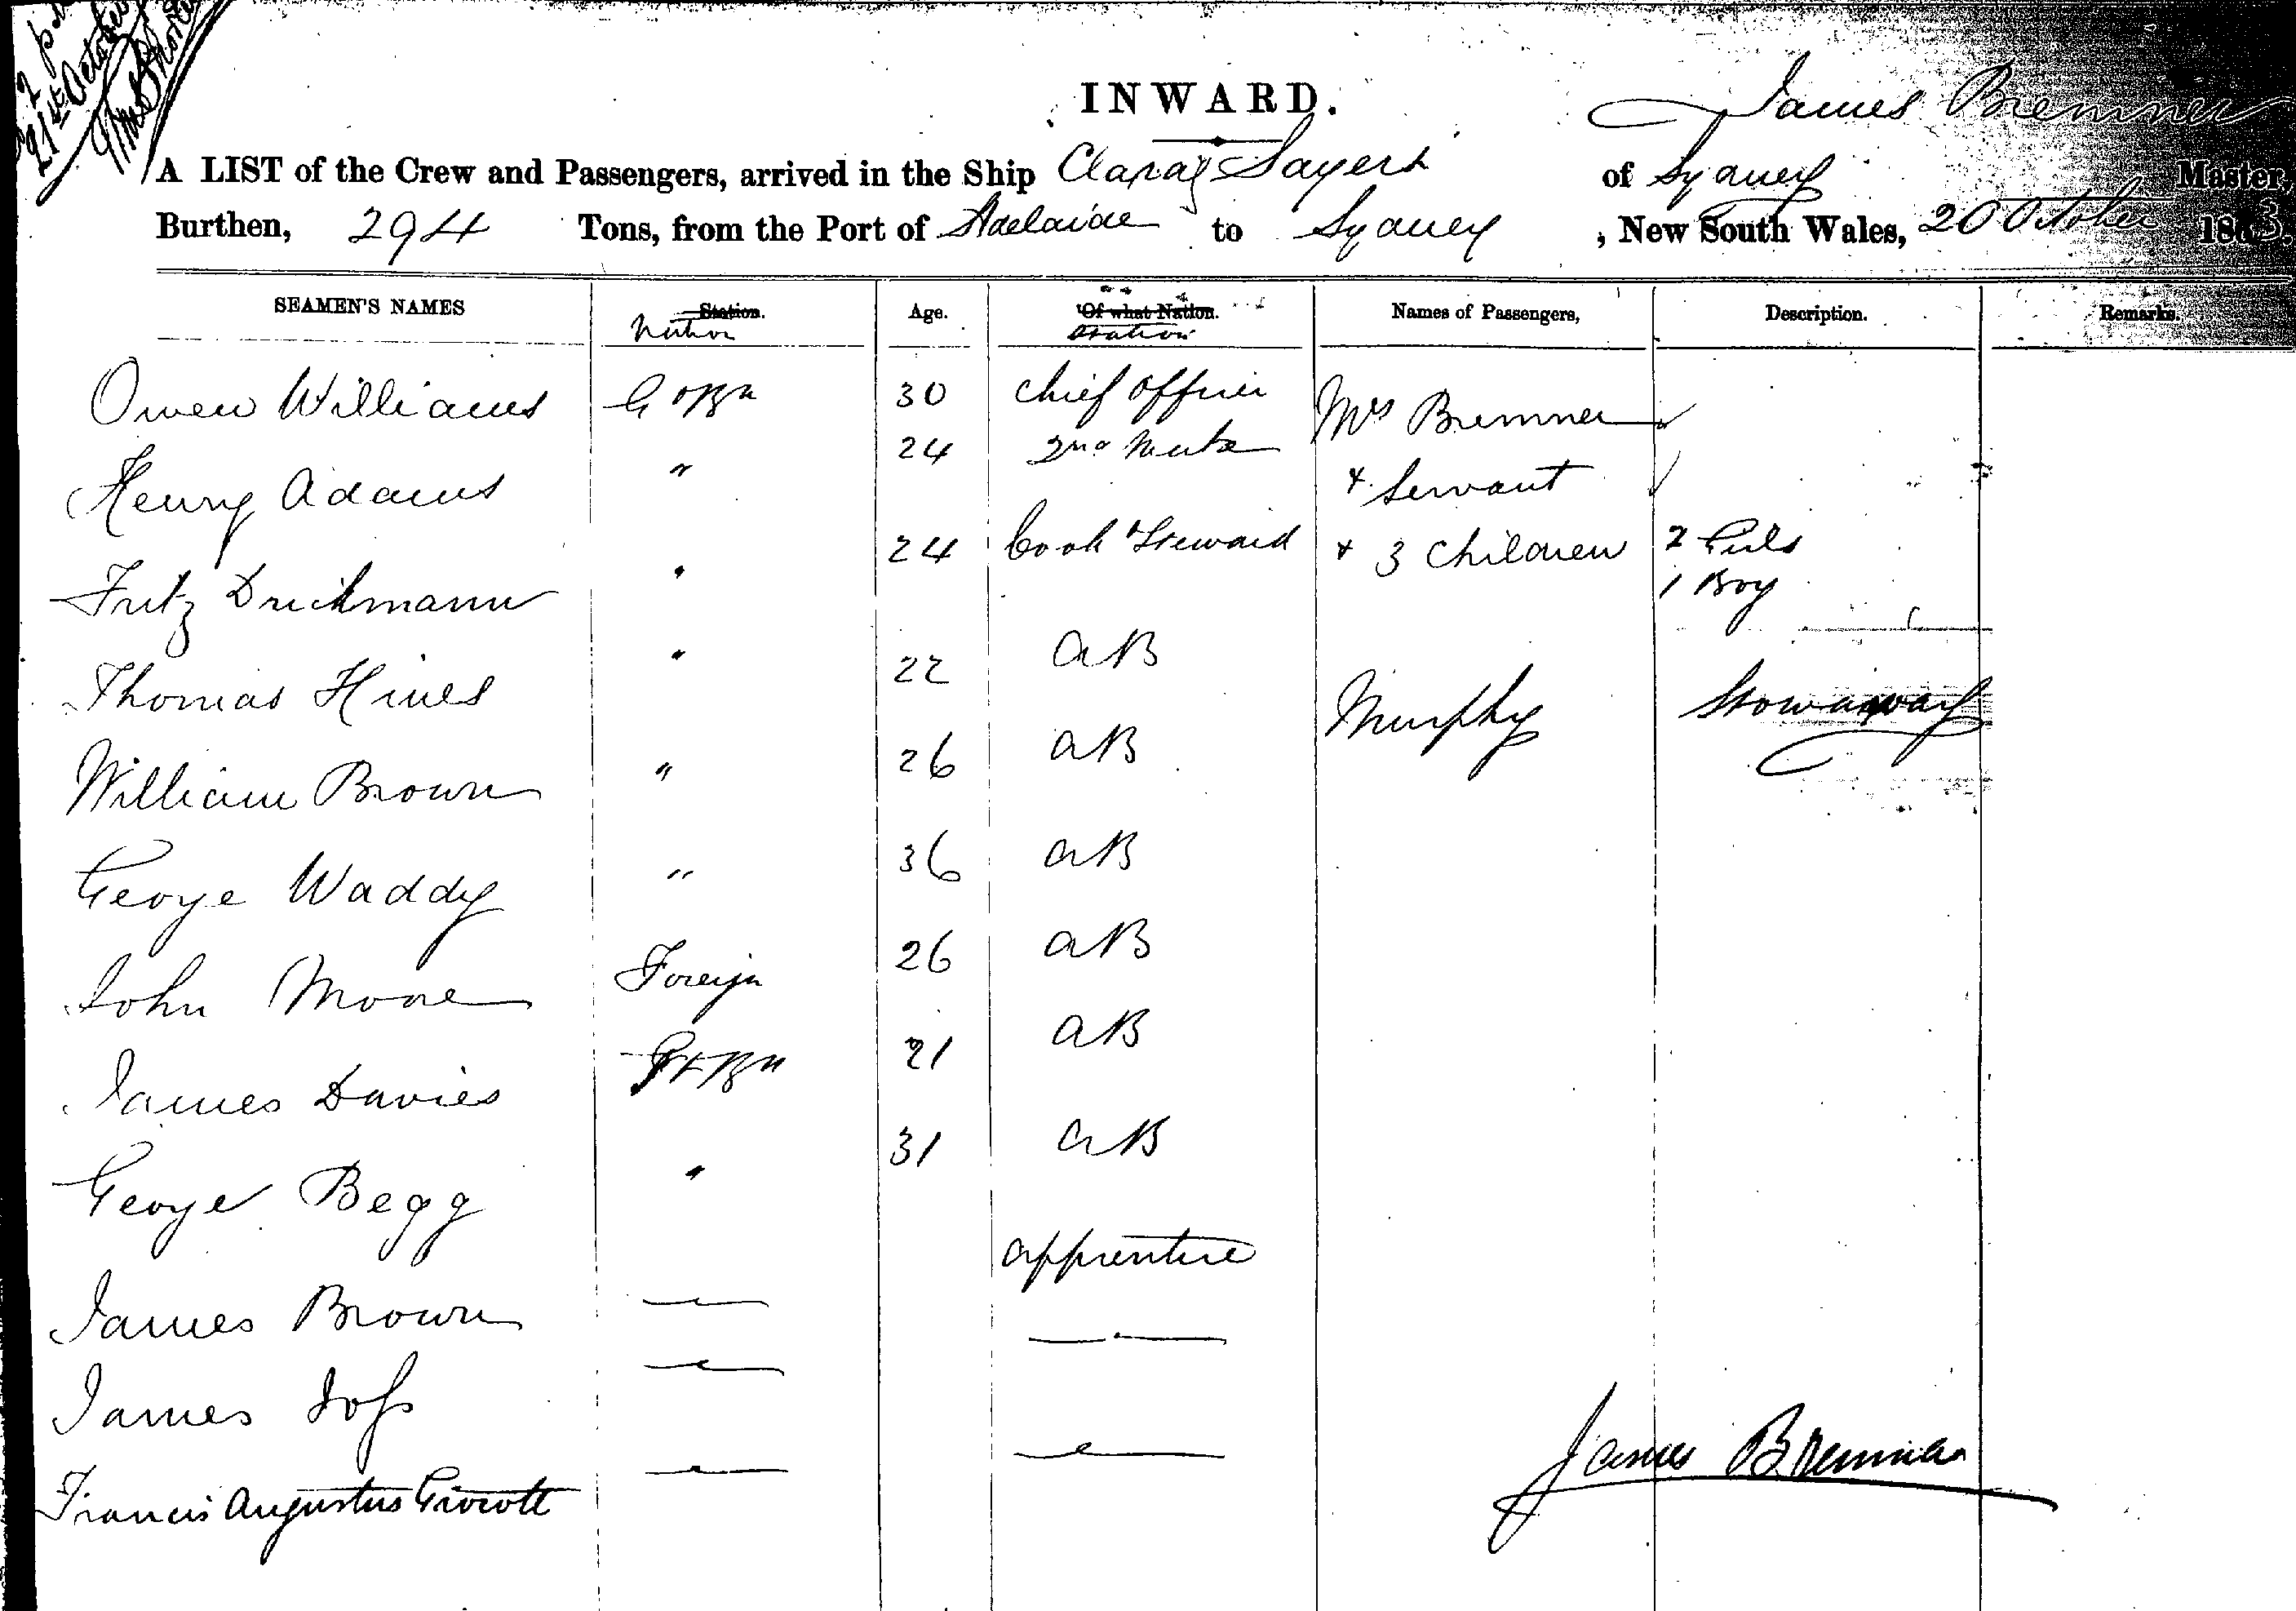 21st October
INWARD.
James Bremner
A LIST of the Crew and Passengers, arrived in the Ship Clara Sayers of Sydney Master,
Burthen, 294 Tons, from the Port of Adelaide to Sydney, New South Wales, 20 October 1883.
SEAMEN'S NAMES Station. Age. Of what Nation. Names of Passengers, Description. Remarks.
Nation Station
Owen Williams Gt Bn 30 Chief Officer Mrs Bremner
Henry Adams " 24 2nd Mate + Servant
Fritz " 24 Cook Steward + 3 Children 2 Girls
1 Boy
Thomas Hines " 22 AB
Murphy Stowaway
William Brown " 26 AB
George Waddy " 36 AB
John Moore Foreign 26 AB
James Davies Gt Bn 21 AB
George Begg " 31 AB
James Brown — apprentice
James — —
Francis Augustus — —
James Bremner